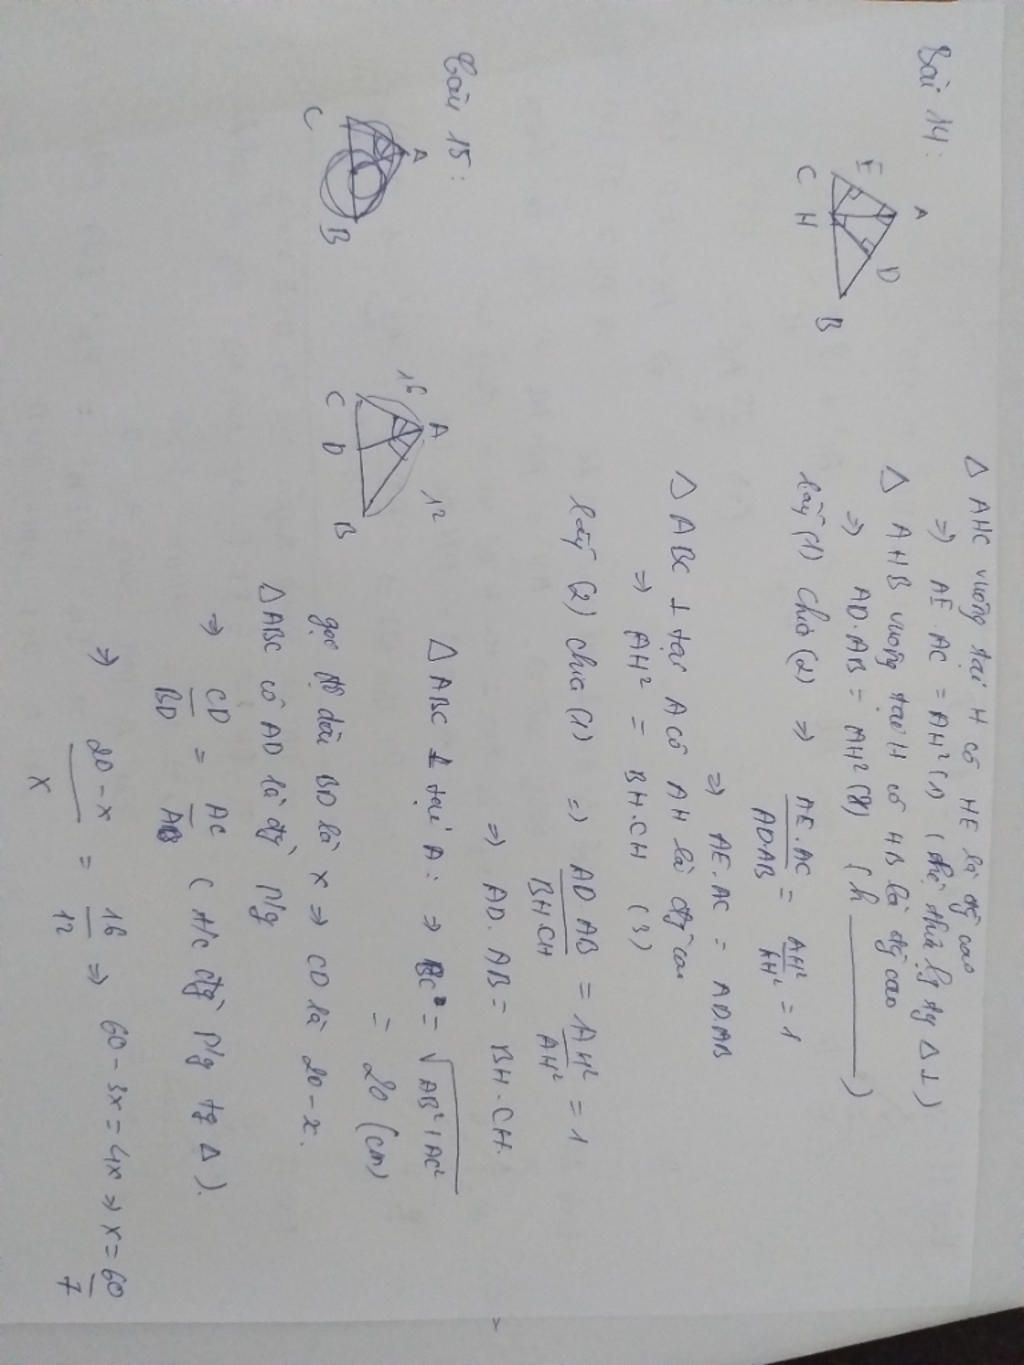 Bài 14:
A
E
D
C
H
B
Δ AHC vuông tại H có HE là đg cao
⇒ AE.AC = AH² (1) ( hệ thức lg tg Δ ⊥ )
Δ AHB vuông tại H có HB là đg cao
⇒ AD.AB = AH² (2) ( h )
lấy (1) chia (2) ⇒ AE.AC / AD.AB = AH² / AH² = 1
⇒ AE.AC = AD.AB
Δ ABC ⊥ tại A có AH là đg cao
⇒ AH² = BH.CH (3)
lấy (2) chia (1) ⇒ AD.AB / BH.CH = AH² / AH² = 1
⇒ AD.AB = BH.CH
Bài 15:
A
C
B
A
16
12
C
D
B
Δ ABC ⊥ tại A: ⇒ BC = √AB²+AC²
= 20 (cm)
gọi độ dài BD là x ⇒ CD là 20-x.
Δ ABC có AD là đg p/g
⇒ CD / BD = AC / AB ( t/c đg p/g tg Δ ).
⇒ 20-x / x = 16 / 12 ⇒ 60-3x = 4x ⇒ x = 60 / 7